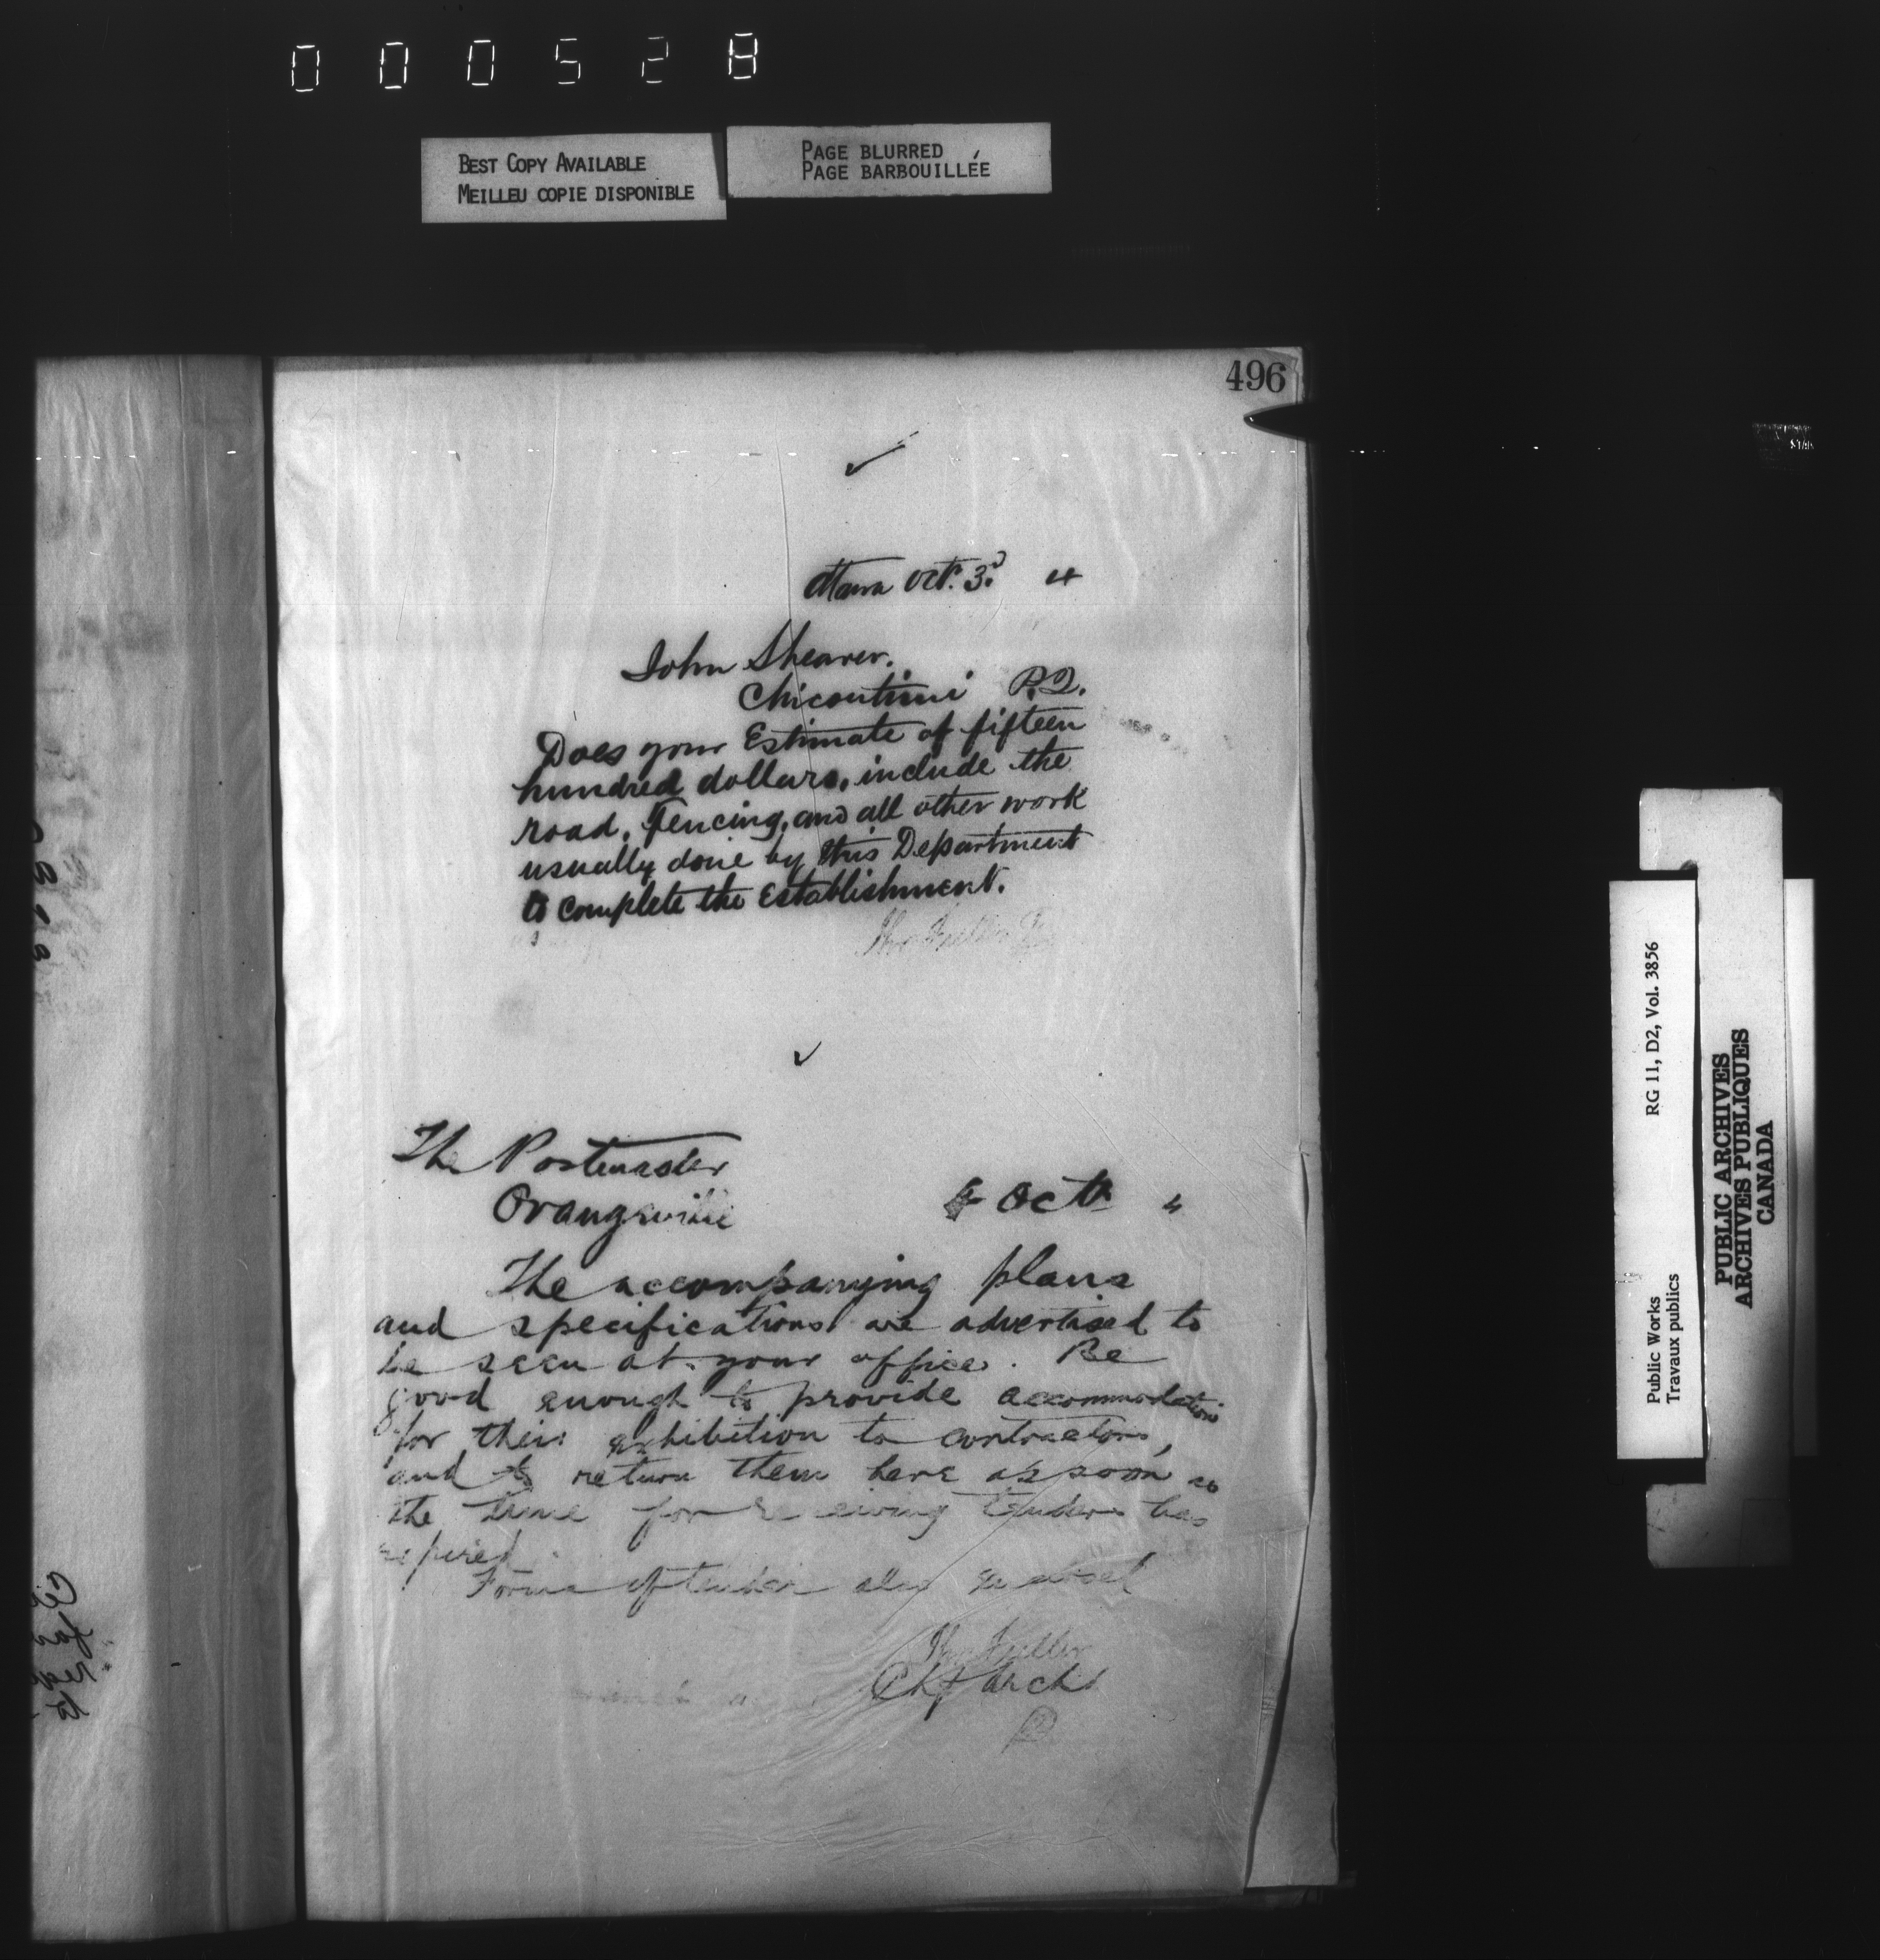 000528
BEST COPY AVAILABLE
MEILLEU COPIE DISPONIBLE
PAGE BLURRED
PAGE BARBOUILLÉE
496
Ottawa Oct. 3d 4
John Shearer.
Chicoutimi P.Q.
Does your Estimate of fifteen
hundred dollars, include the
road, fencing, and all other work
usually done by this Department
to complete the Establishment.
Thos Fuller
The Postmaster
Orangeville
4 Oct 4
The accompanying plans
and specifications are advertised to
be seen at your office. Be
good enough to provide accommodation
for their exhibition to contractors,
and to return them here as soon as
the time for receiving tenders has
expired
Forms of tender also
Thos Fuller
Chf Arch
RG 11, D2, Vol. 3856
Public Works
Travaux publics
PUBLIC ARCHIVES
ARCHIVES PUBLIQUES
CANADA